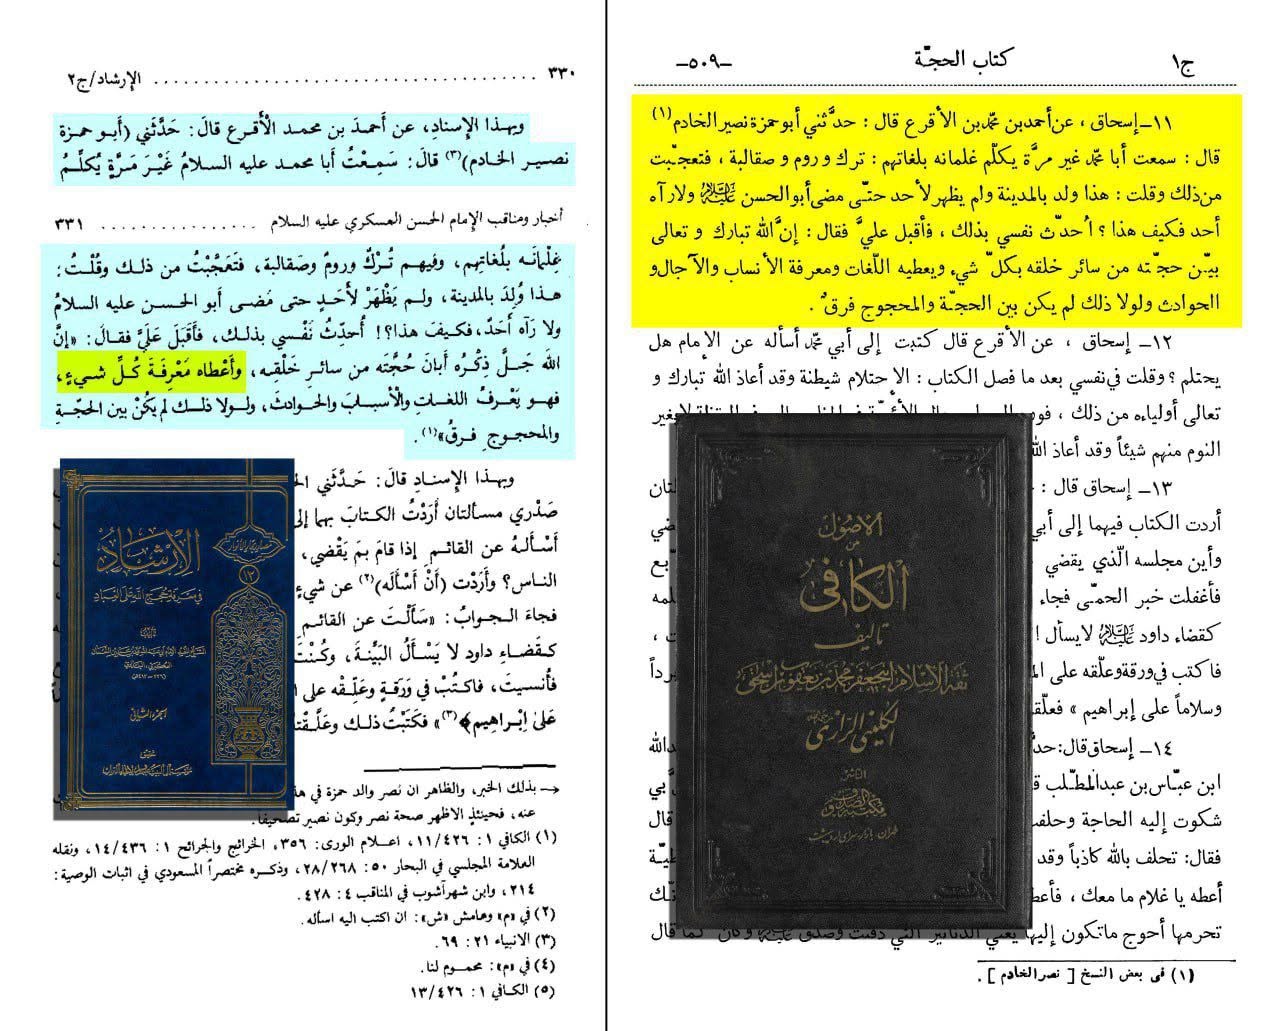 ج١ كتاب الحجّة -٥٠٩-
١١- إسحاق ، عن أحمد بن محمّد بن الأقرع قال : حدَّثني أبو حمزة نصير الخادم (١)
قال : سمعت أبا محمّد غير مرَّة يكلّم غلمانه بلغاتهم : ترك و روم و صقالبة ، فتعجّبت
من ذلك وقلت : هذا ولد بالمدينة ولم يظهر لأحد حتّى مضى أبو الحسن عليه السلام ولا رآه
أحد فكيف هذا ؟ اُحدّث نفسي بذلك ، فأقبل عليَّ فقال : إنَّ الله تبارك و تعالى
بيّن حجّته من سائر خلقه بكلّ شيء ويعطيه اللّغات ومعرفة الأنساب والآجال و
الحوادث ولولا ذلك لم يكن بين الحجّة والمحجوج فرقٌ .
١٢- إسحاق ، عن الأقرع قال كتبت إلى أبي محمّد أسأله عن الإمام هل
يحتلم ؟ وقلت في نفسي بعد ما فصل الكتاب : الاحتلام شيطنة وقد أعاذ الله تبارك و
تعالى أولياءه من ذلك ،
النوم منهم شيئاً وقد أعاذ
١٣- إسحاق قال :
أردت الكتاب فيهما إلى أبي
وأين مجلسه الّذي يقضي
فأغفلت خبر الحمّى فجاء
كقضاء داود عليه السلام لا يسأل
فاكتب في ورقة وعلّقه على
وسلاماً على إبراهيم » فعلّق
١٤- إسحاق قال:
ابن عبّاس بن عبدالمطّلب
شكوت إليه الحاجة وحلفت قال
فقال: تحلف بالله كاذباً وقد
أعطه يا غلام ما معك ،
تحرمها أحوج ماتكون إليها يعني الدنانير الّتي دفنت وصدق عليه السلام وكان كما قال
(١) في بعض النسخ [ نصر الخادم ] .
الاصول
من
الكافي
تاليف
ثقة الاسلام ابي جعفر محمد بن يعقوب بن اسحق
الكليني الرازي
الناشر
مكتبة الصدوق
طهران - بازار سراي اردبيهشت
٣٣٠ الإرشاد/ج٢
وبهذا الإسنادِ، عن أحمدَ بن محمد الأقرع قالَ: حَدَّثَني (أبو حمزة
نصير الخادم)(٣) قالَ: سَمِعْتُ أبا محمد عليه السلامُ غَيْرَ مَرَّةٍ يُكلِّمُ
أخبار ومناقب الإمام الحسن العسكري عليه السلام ٣٣١
غِلْمانَه بلُغاتِهم، وفيهم تُرْكٌ ورومٌ وصَقالبة، فتَعَجَّبْتُ من ذلك وقُلْتُ:
هذا وُلِدَ بالمدينة، ولم يَظْهَرْ لأحَدٍ حتى مَضى أبو الحسن عليه السلامُ
ولا رَآه أحَدٌ، فكيفَ هذا؟! اُحدِّثُ نَفْسي بذلك، فأقبَلَ عَلَيَّ فقالَ: «إنَّ
اللهَ جَلَّ ذِكْرُه أبانَ حُجَّتَه من سائرِ خَلْقِه، وأعْطاه مَعْرِفَةَ كُلِّ شيءٍ،
فهو يَعْرِفُ اللغاتِ والأسبابَ والحوادثَ، ولولا ذلك لم يَكُنْ بين الحجّةِ
والمحجوجِ فرقٌ»(١).
وبهذا الإسنادِ قالَ: حَدَّثَني
صَدْري مسألتان أرَدْتُ الكتابَ بهما إلى
أسْألهُ عن القائم إذا قامَ بمَ يَقْضي،
الناس؟ وأرَدْت (أنْ أسْألَه)(٢) عن شيءٍ
فجاءَ الجوابُ: «سَألْتَ عن القائم
كقضاءِ داود لا يَسْألُ البيِّنةَ، وكُنْتَ
فأنسيتَ، فاكتُبْ في وَرَقةٍ وعَلِّقْه على
عَلىٰ إبْراهيم﴾(٣)» فكَتَبْتُ ذلك وعَلَّقْتُ
الإرشاد
في معرفة حجج الله على العباد
تأليف
الجزء الثاني
تحقيق
مؤسسة آل البيت عليهم السلام لتحقيق التراث
← بذلك الخبر، والظاهر ان نصر والد حمزة في
عنه، فحينئذٍ الاظهر صحة نصر وكون نصير تصحيفاً.
(١) الكافي ١: ١١/٤٢٦، اعلام الورى: ٣٥٦، الخرائج والجرائح ١: ١٤/٤٣٦، ونقله
العلامة المجلسي في البحار ٥٠: ٢٨/٢٦٨، وذكره مختصراً المسعودي في اثبات الوصية:
٢١٤، وابن شهرآشوب في المناقب ٤: ٤٢٨.
(٢) في «م» وهامش «ش»: ان اكتب اليه اسأله.
(٣) الانبياء ٢١: ٦٩.
(٤) في «م»: محموم لنا.
(٥) الكافي ١: ١٣/٤٢٦